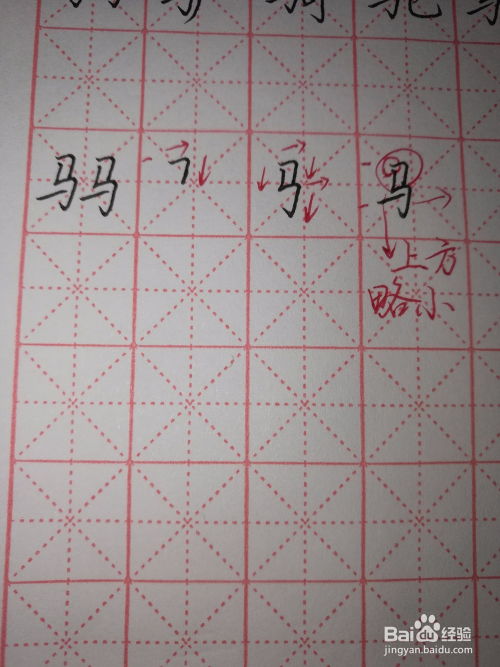 马马 马 马
上方
略小
Baidu经验
jingyan.baidu.com